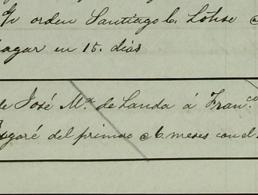 orden Santiago L. Lohse
pagar en 15. dias
de José Mª de Landa á Franco
pagaré del primao á 6 meses con el